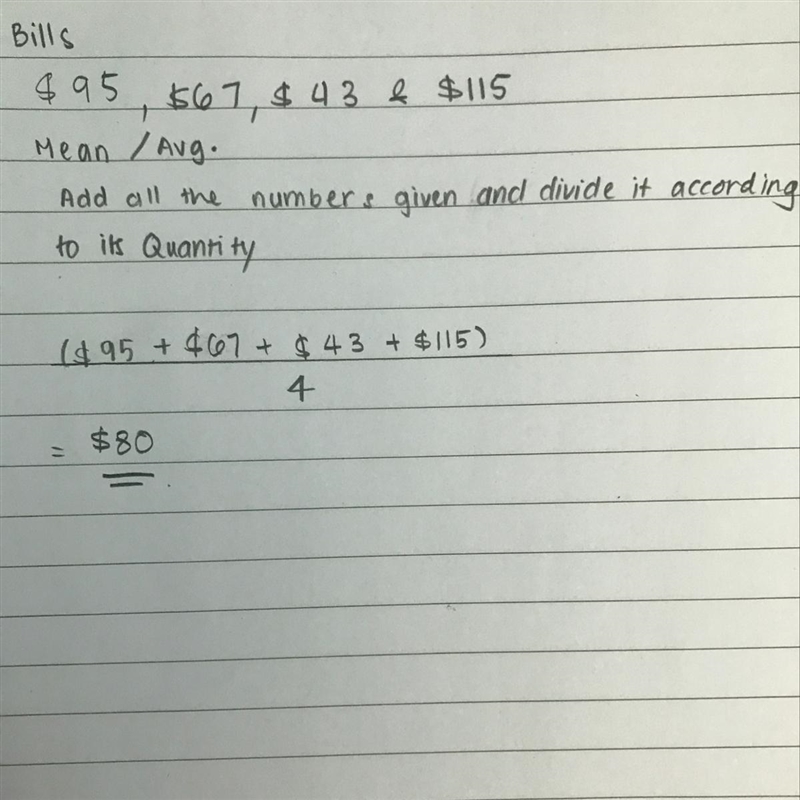 Bills
$95, $67, $43 & $115
Mean / Avg.
Add all the numbers given and divide it according
to its Quantity
($95 + $67 + $43 + $115)
4
= $80